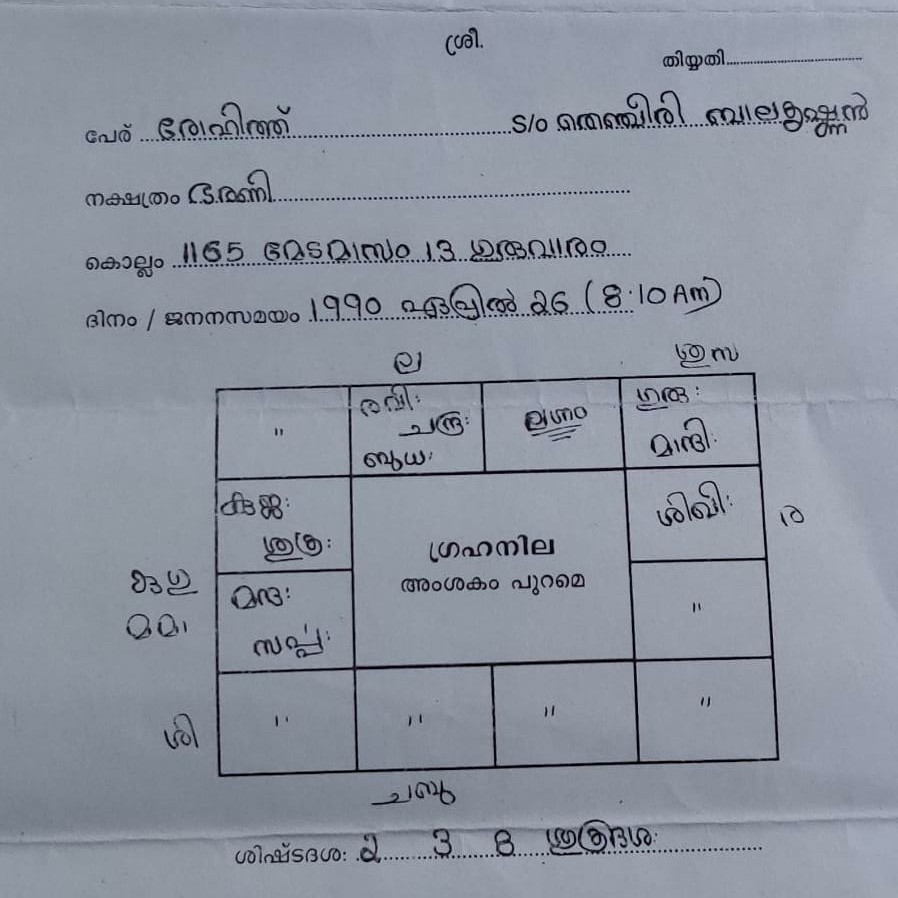 ശ്രീ.
തിയ്യതി
പേര് രോഹിത്ത് S/o തെഞ്ചീരി ബാലകൃഷ്ണൻ
നക്ഷത്രം ഭരണി
കൊല്ലം 1165 മേടമാസം 13 ഗുരുവാരം
ദിനം / ജനനസമയം 1990 ഏപ്രിൽ 26 (8:10 Am)
ല
" രവി: ചന്ദ്ര: ബുധ: ലഗ്നം ഗുരു: മാന്ദി:
കുജ: ശുക്ര: ശിഖി: ര
ഗ്രഹനില
അംശകം പുറമെ
കുഗു
മമാ മന്ദ: സർപ്പ: "
ശി " " " "
ചബു
ശിഷ്ടദശ: 2 3 8 ശുക്രദശ: